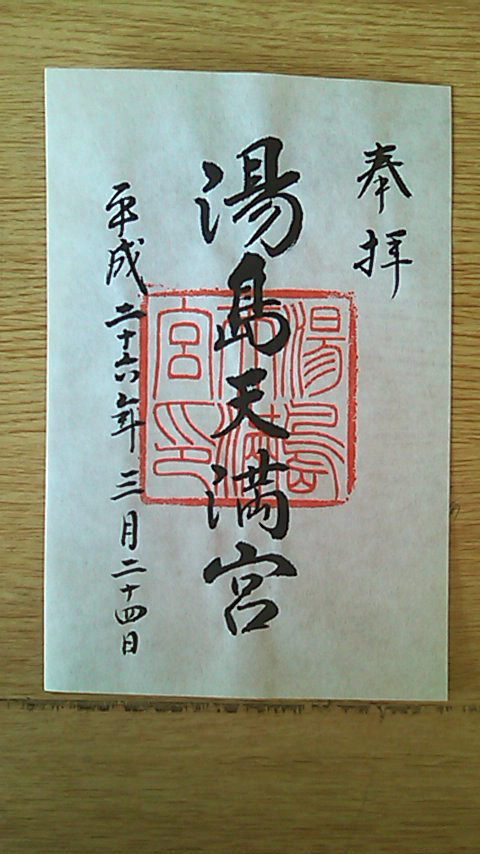 奉拝
湯島天満宮
湯島天満宮印
平成二十六年三月二十四日